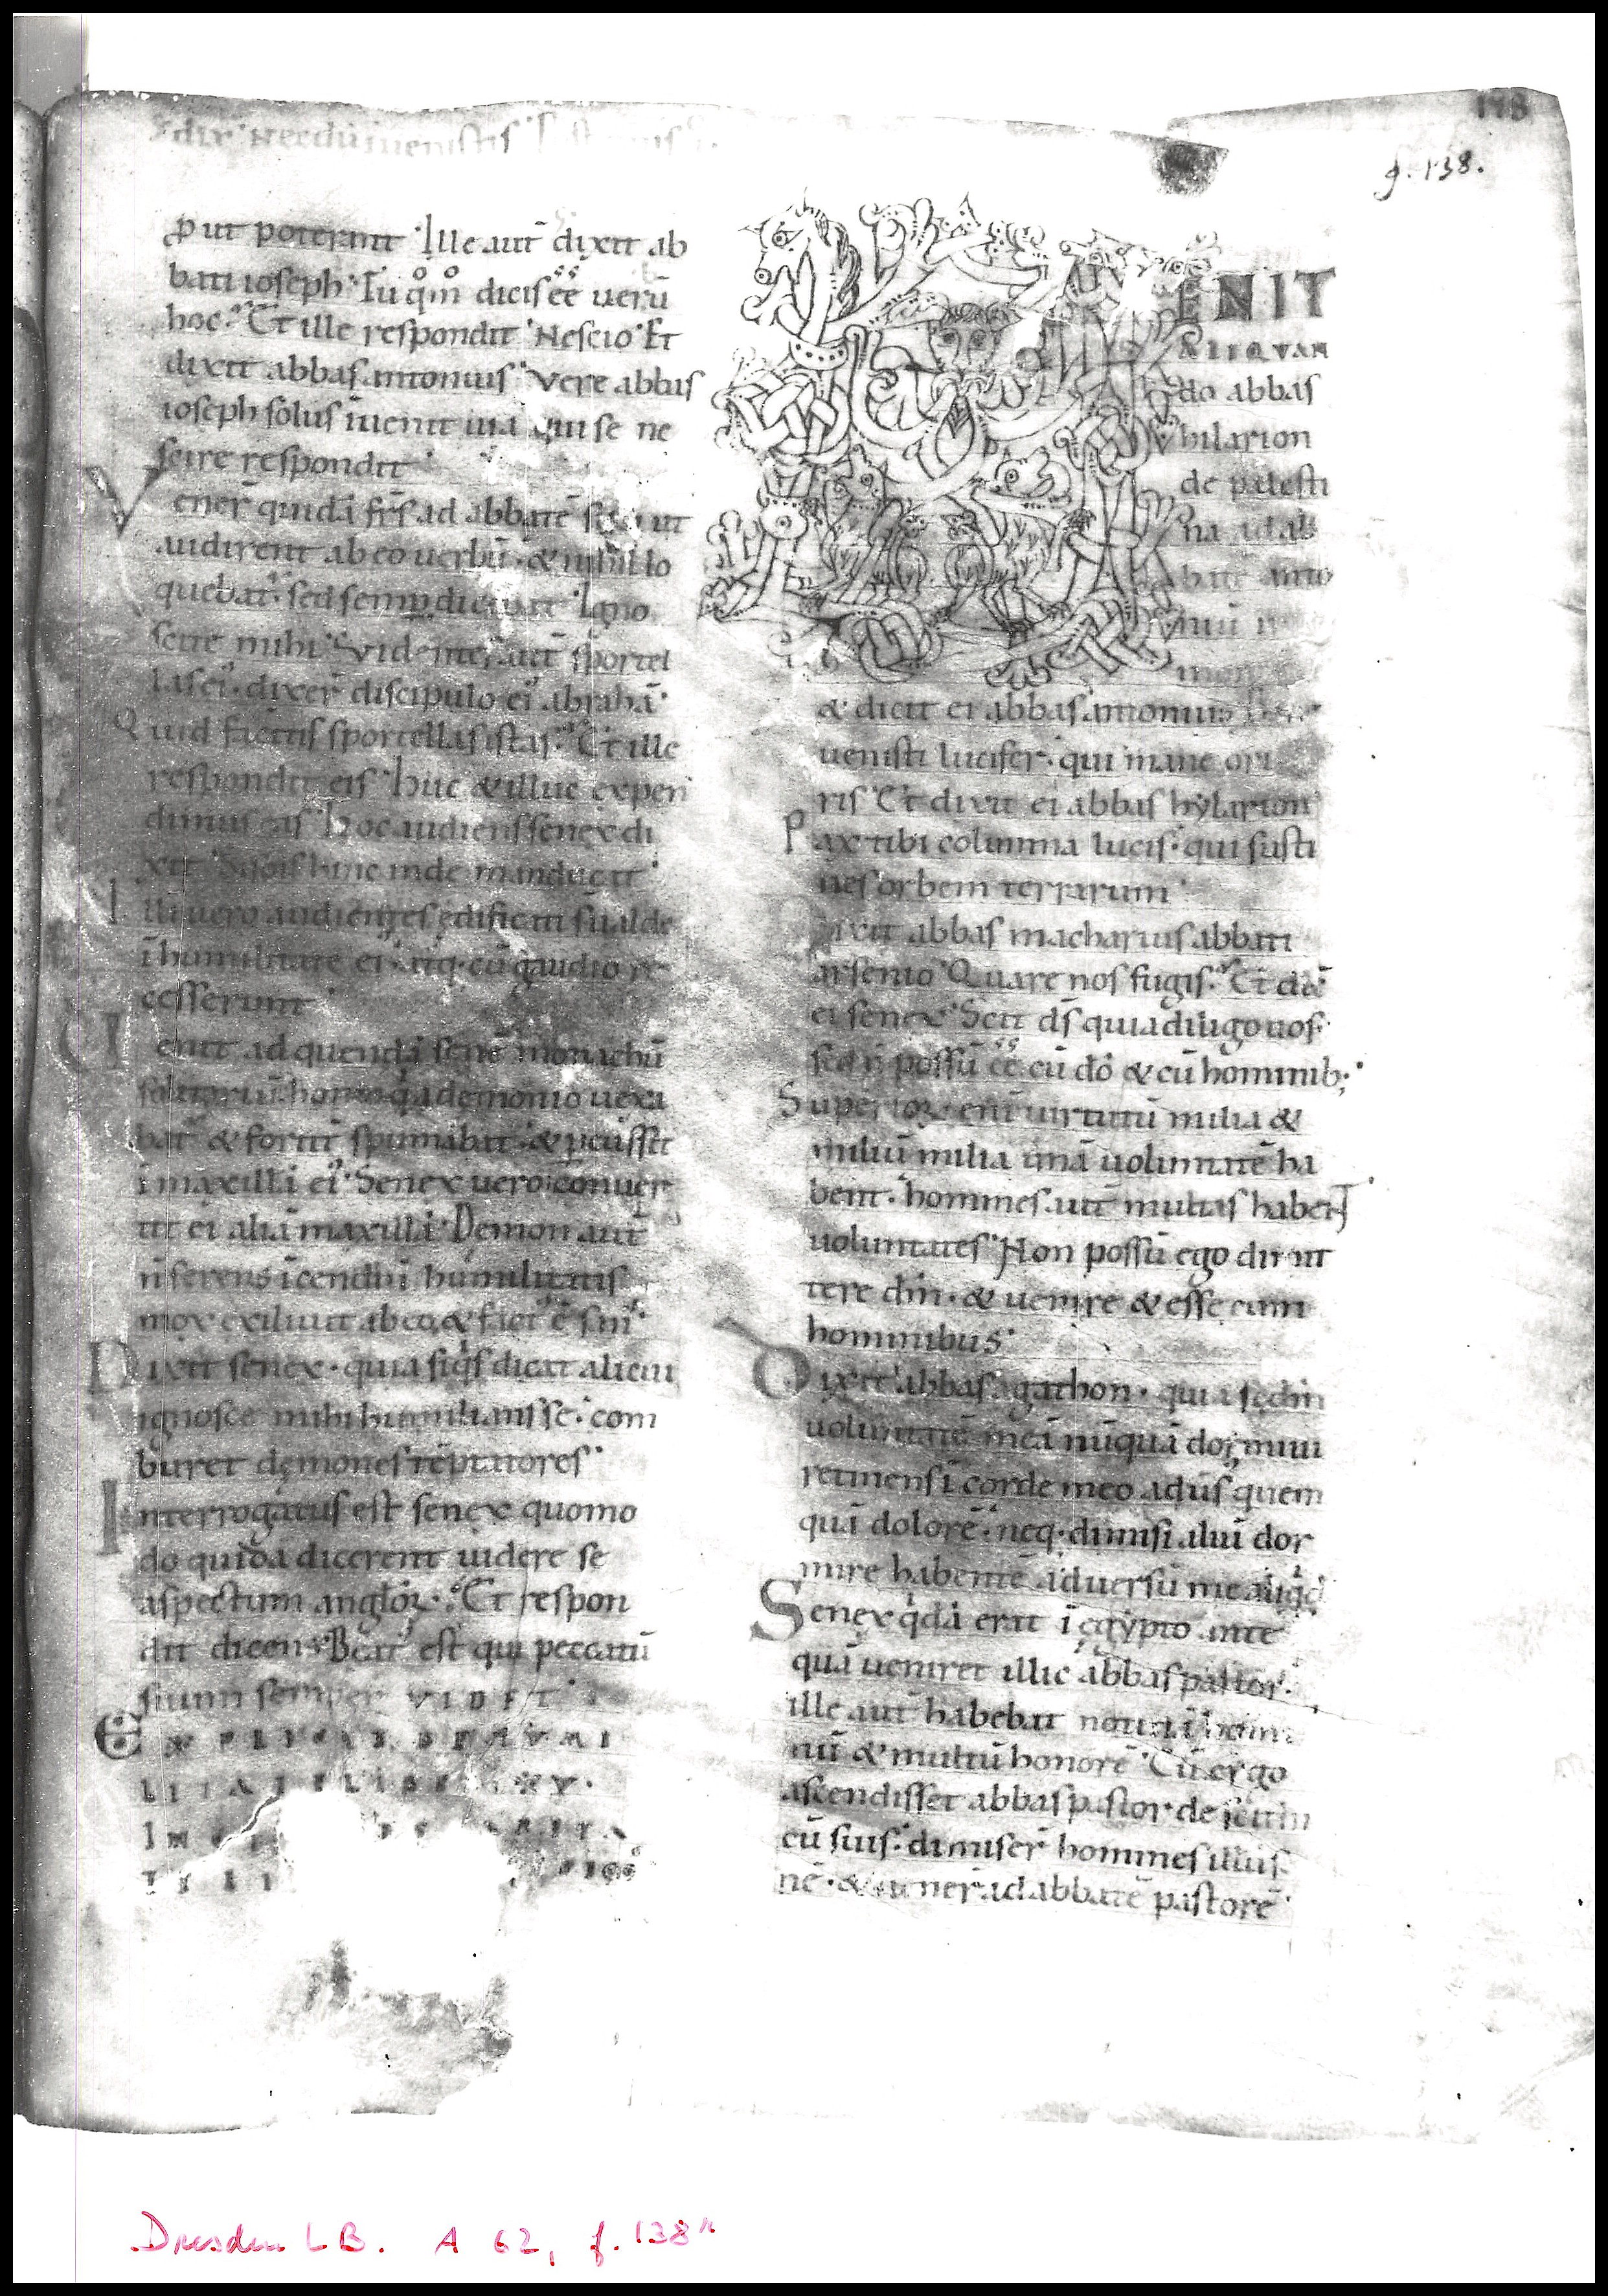 dix Necdū inuenistis
178
f. 138.
put poterant Ille aut̄ dixit ab
bati ioseph Tu qͦmͦ dicis eē uerū
hoc Et ille respondit Nescio Et
dixit abbas antonius Vere abbas
ioseph solus īuenit uiā qui se ne
scire respondit
Vener̄ quidā fr̄s ad abbatē ut
audirent ab eo uerbū & nihil lo
quebat sed semp̄ dicebat Igno
scite mihi Videntes aut̄ sportel
las ei dixer̄ discipulo ei abrahā
Quid facitis sportellas istas Et ille
respondit eis huc & illuc expen
dimus eas hoc audiens senex di
xit hinc inde manducat
Illi uero audientes edificati sū ualde
ī humilitate ei itaq; cū gaudio re
cesserunt
Venit ad quendā senē monachū
solitariū homo q̇ a demonio uexa
bat̄ & fortit̄ spumabat & p̄cussit
ī maxillā ei Senex uero conuer
tit ei aliā maxillā Demon aut̄
n̄ ferens īcendiū humilitatis
mox exiliuit ab eo & fact̄ ē san
Dixit senex quia siq̇s dicat alicui
ignosce mihi humilians se com
buret demones tēptatores
Interrogatus est senex quomo
do quidā dicerent uidere se
aspectum angloꝝ Et respon
dit dicens Beat̄ est qui peccatū
suum semper VIDET
ENIT
ALIQVAN
do abbas
hilarion
de palesti
na ad ab
batē anto
niū in
mon
& dicit ei abbas antonius Bene
uenisti lucifer qui mane ori
ris Et dixit ei abbas hylarion
Pax tibi columna lucis qui susti
nes orbem terrarum
Dixit abbas macharius abbati
arsenio Quare nos fugis Et dix̄
ei senex Scit dš quia diligo uos
sed n̄ possū eē cū dō & cū hominib;
Superioꝝ enī uirtutū milia &
miliū milia unā uoluntatē ha
bent homines aut̄ multas habent
uoluntates Non possū ego dimit
tere dm̄ & uenire & esse cum
hominibus
Dixit abbas agathon quia sc̄din
uoluntatē meā nūquā dormiui
retinens ī corde meo aduš quem
quā dolorē neq; dimisi aliū dor
mire habentē aduersū me aliq̇d
Senex q̇dā erat ī egypto ante
quā ueniret illic abbas pastor
ille aut̄ habebat
& multū honorē Cū ergo
ascendisset abbas pastor de scithi
cū suis dimiser̄ homines illū s
nē & uener̄ ad abbatē pastorē
Dresden LB. A 62, f. 138r